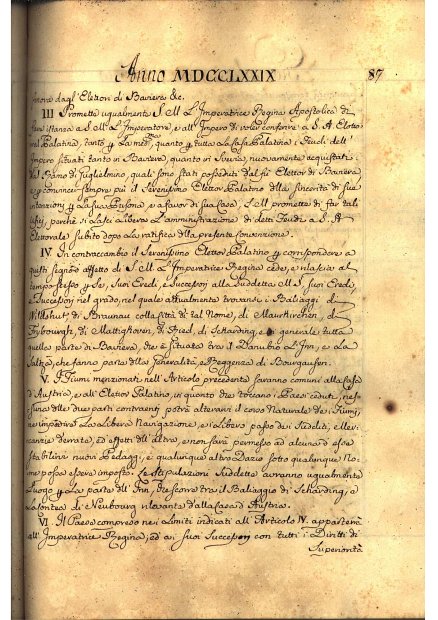 Anno MDCCLXXIX
87
innova dagl' Elettori di Baviera &c.
III Promette ugualmente S. M. L' Imperatrice Regina Apostolica di
fare istanza a S. M. L' Imperatore, e all' Impero di voler conferire a S. A. Eletto
ral Palatina, tanto p La med.ma quanto p tutta La Casa Palatina i Feudi dell'
Impero situati tanto in Baviera, quanto in Svevia, nuovamente acquistati
dal Ramo di Guglielmino, quali sono stati posseduti dal fù Elettor di Baviera
e p convincer sempre più il Serenissimo Elettor Palatino della sincerità di sue
intenzioni p La sua Persona, e a favor di sua Casa, S. M. promette di far tali
ufizj, perchè si Lasci Libera L' amministrazione di detti Feudi a S. A.
Elettorale subito dopo La ratifica della presente Convenzione.
IV. In contraccambio il Serenissimo Elettor Palatino p corrispondere a
questi segni d' affetto di S. M. L' Imperatrice Regina cede, e rilascia al
tempo stesso p Se, suoi Eredi, e Successori alla Suddetta M. S. suoi Eredi,
e Successori nel grado, nel quale attualmente trovansi i Baliaggi di
Wildshut, di Braunau colla Città di tal Nome, di Maurkirchen, di
Freybourgh, di Mattighoven, di Ried, di Scharding, e in generale tutta
quella parte di Baviera, che è situata tra il Danubio L' Inn, e La
Saltza, che fanno parte della Generalità, e Reggenza di Bourgausen.
V. I Fiumi menzionati nell' Articolo precedente saranno comuni alla Casa
d' Austria, e all' Elettor Palatino, in quanto che toccano i Paesi ceduti, nes
suno delle due parti contraenti potrà alterarvi il corso Naturale dei Fiumi,
ne impedirvi La Libera Navigazione, e il Libero passo dei Sudditi, e Mer
canzie derrate, ed effetti dell' altro, e non sarà permesso ad alcuna d' esse
stabilirvi nuovi Pedaggi, e qualunque altro Dazio sotto qualunque No
me possa essere imposto. Le stipulazioni Suddette avranno ugualmente
Luogo p La parte dell' Inn, che scorre tra il Baliaggio di Scharding, e La
Contea di Neubourg rilevante dalla Casa d' Austria.
VI. Il Paese compreso nei Limiti indicati all' Articolo IV. apparterrà
all' Imperatrice Regina, ed ai suoi Successori con tutti i Diritti di
Superiorità